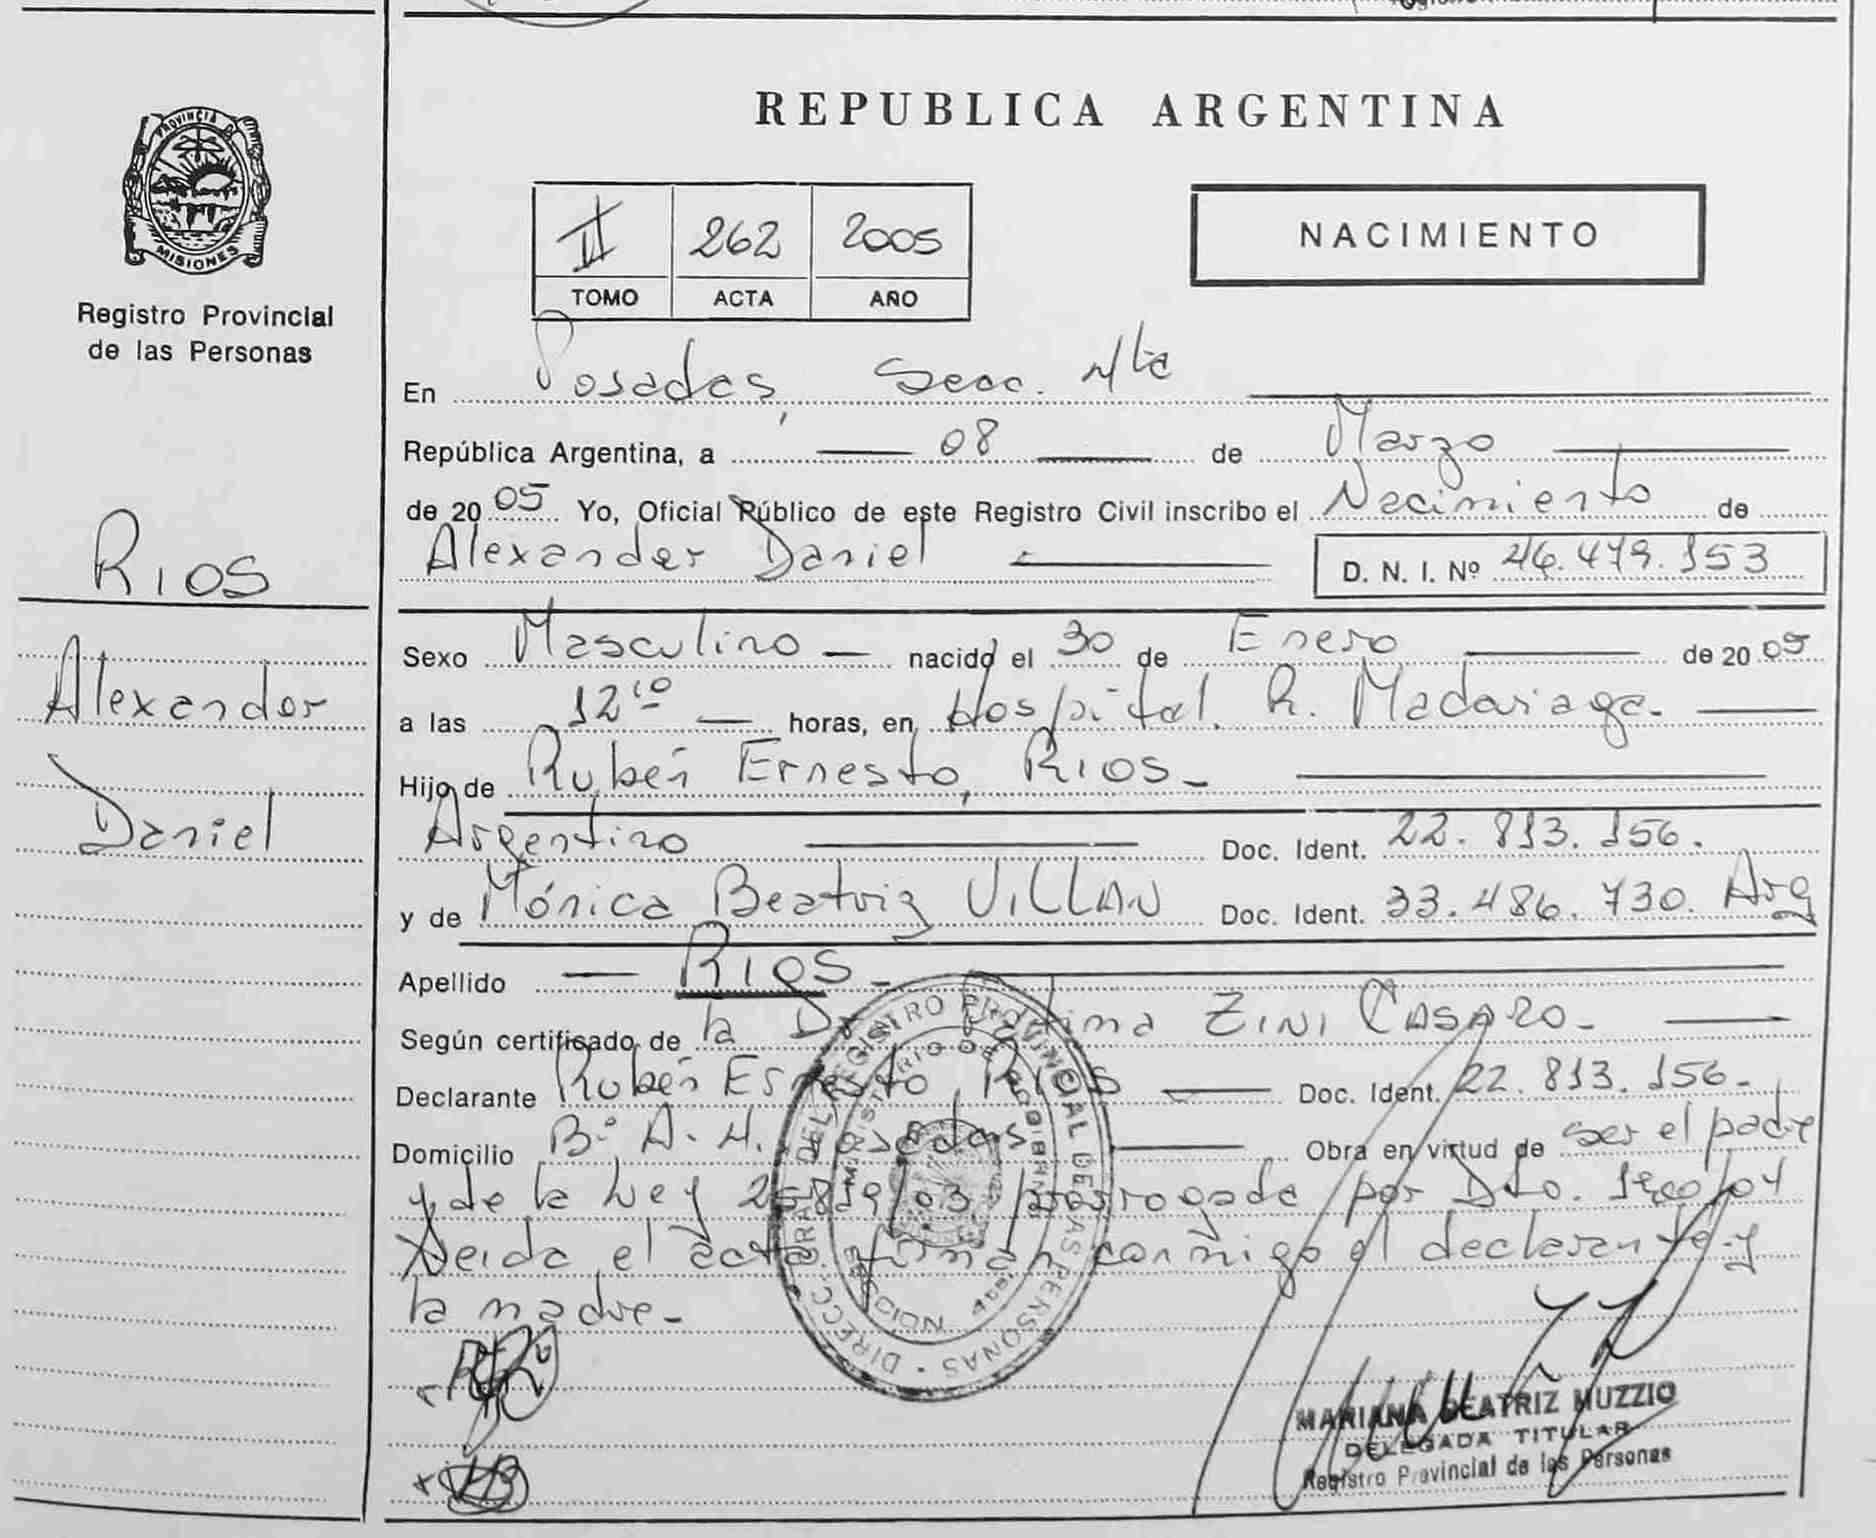 PROVINCIA D
MISIONES
Registro Provincial
de las Personas
RIOS
Alexander
Daniel
REPUBLICA ARGENTINA
II 262 2005
TOMO ACTA AÑO
NACIMIENTO
En Posadas, Secc. 4ta
República Argentina, a 08 de Marzo
de 2005 Yo, Oficial Público de este Registro Civil inscribo el Nacimiento de
Alexander Daniel D. N. I. Nº 46.479.153
Sexo Masculino nacido el 30 de Enero de 2005
a las 12:10 horas, en Hospital R. Madariaga.
Hijo de Rubén Ernesto, RIOS
Argentino Doc. Ident. 22.813.156.
y de Mónica Beatriz VILLAN Doc. Ident. 33.486.730. Arg
Apellido RIOS
Según certificado de la ZINI CASARO
Declarante Rubén Ernesto RIOS Doc. Ident. 22.813.156.
Domicilio Bº A. H. Posadas Obra en virtud de ser el padre
y de la Ley 25819/03 prorrogada por Dto.
Leida el acta firman conmigo el declarante y
la madre.
DIRECC. GRAL. DEL REGISTRO PROVINCIAL DE LAS PERSONAS
MINISTERIO DE GOBIERNO
MARIANA BEATRIZ MUZZIO
DELEGADA TITULAR
Registro Provincial de las Personas